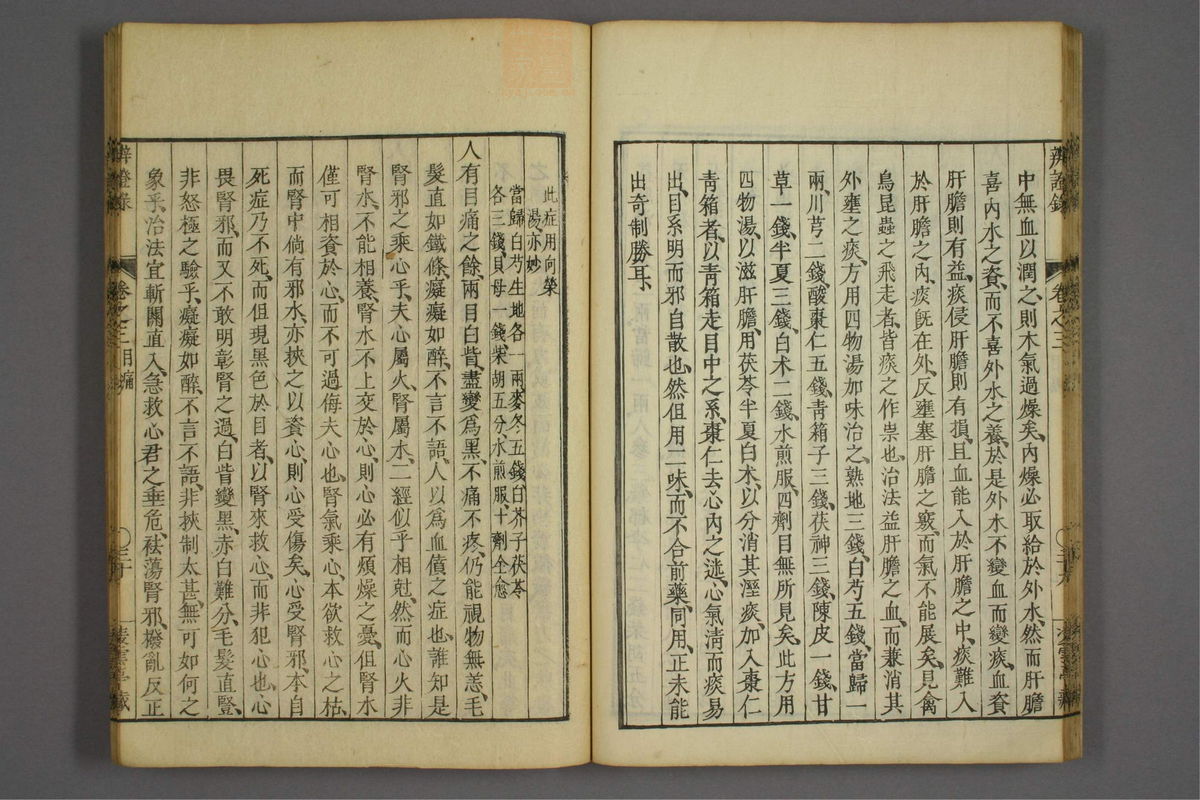 辨證錄 卷之三
中無血以潤之、則木氣過燥矣、內燥必取給於外水、然而肝膽
喜內水之資、而不喜外水之養、於是外水不變血而變痰、血資
肝膽則有益、痰侵肝膽則有損、且血能入於肝膽之中、痰難入
於肝膽之內、痰旣在外、反壅塞肝膽之竅、而氣不能展矣、見禽
鳥昆蟲之飛走者、皆痰之作祟也、治法益肝膽之血、而兼消其
外壅之痰、方用四物湯加味治之、熟地三錢、白芍五錢、當歸一
兩、川芎二錢、酸棗仁五錢、靑箱子三錢、茯神三錢、陳皮一錢、甘
草一錢、半夏三錢、白术二錢、水煎服、四劑目無所見矣、此方用
四物湯、以滋肝膽、用茯苓半夏白术、以分消其溼痰、加入棗仁
靑箱者、以靑箱走目中之系、棗仁去心內之迷、心氣淸而痰易
出、目系明而邪自散也、然但用二味、而不合前藥、同用、正未能
出奇制勝耳、
此症用向榮湯、亦妙
當歸白芍生地各一兩、麥冬五錢、白芥子茯苓
各三錢、貝母一錢、柴胡五分、水煎服、十劑全愈
人有目痛之餘、兩目白眥、盡變爲黑、不痛不疼、仍能視物無恙、毛
髮直如鐵條、癡癡如醉、不言不語、人以爲血僨之症也、誰知是
腎邪之乘心乎、夫心屬火、腎屬水、二經似乎相尅、然而心火非
腎水、不能相養、腎水不上交於心、則心必有煩燥之憂、但腎水
僅可相資於心、而不可過侮夫心也、腎氣乘心、本欲救心之枯、
而腎中倘有邪水、亦挾之以資心、則心受傷矣、心受腎邪、本自
死症、乃不死、而但現黑色於目者、以腎來救心、而非犯心也、心
畏腎邪、而又不敢明彰腎之過、白眥變黑、赤白難分、毛髮直豎、
非怒極之驗乎、癡癡如醉、不言不語、非挾制太甚、無可如何之
象乎、治法宜斬關直入、急救心君之垂危、祛蕩腎邪、撥亂反正
卷之三 目痛